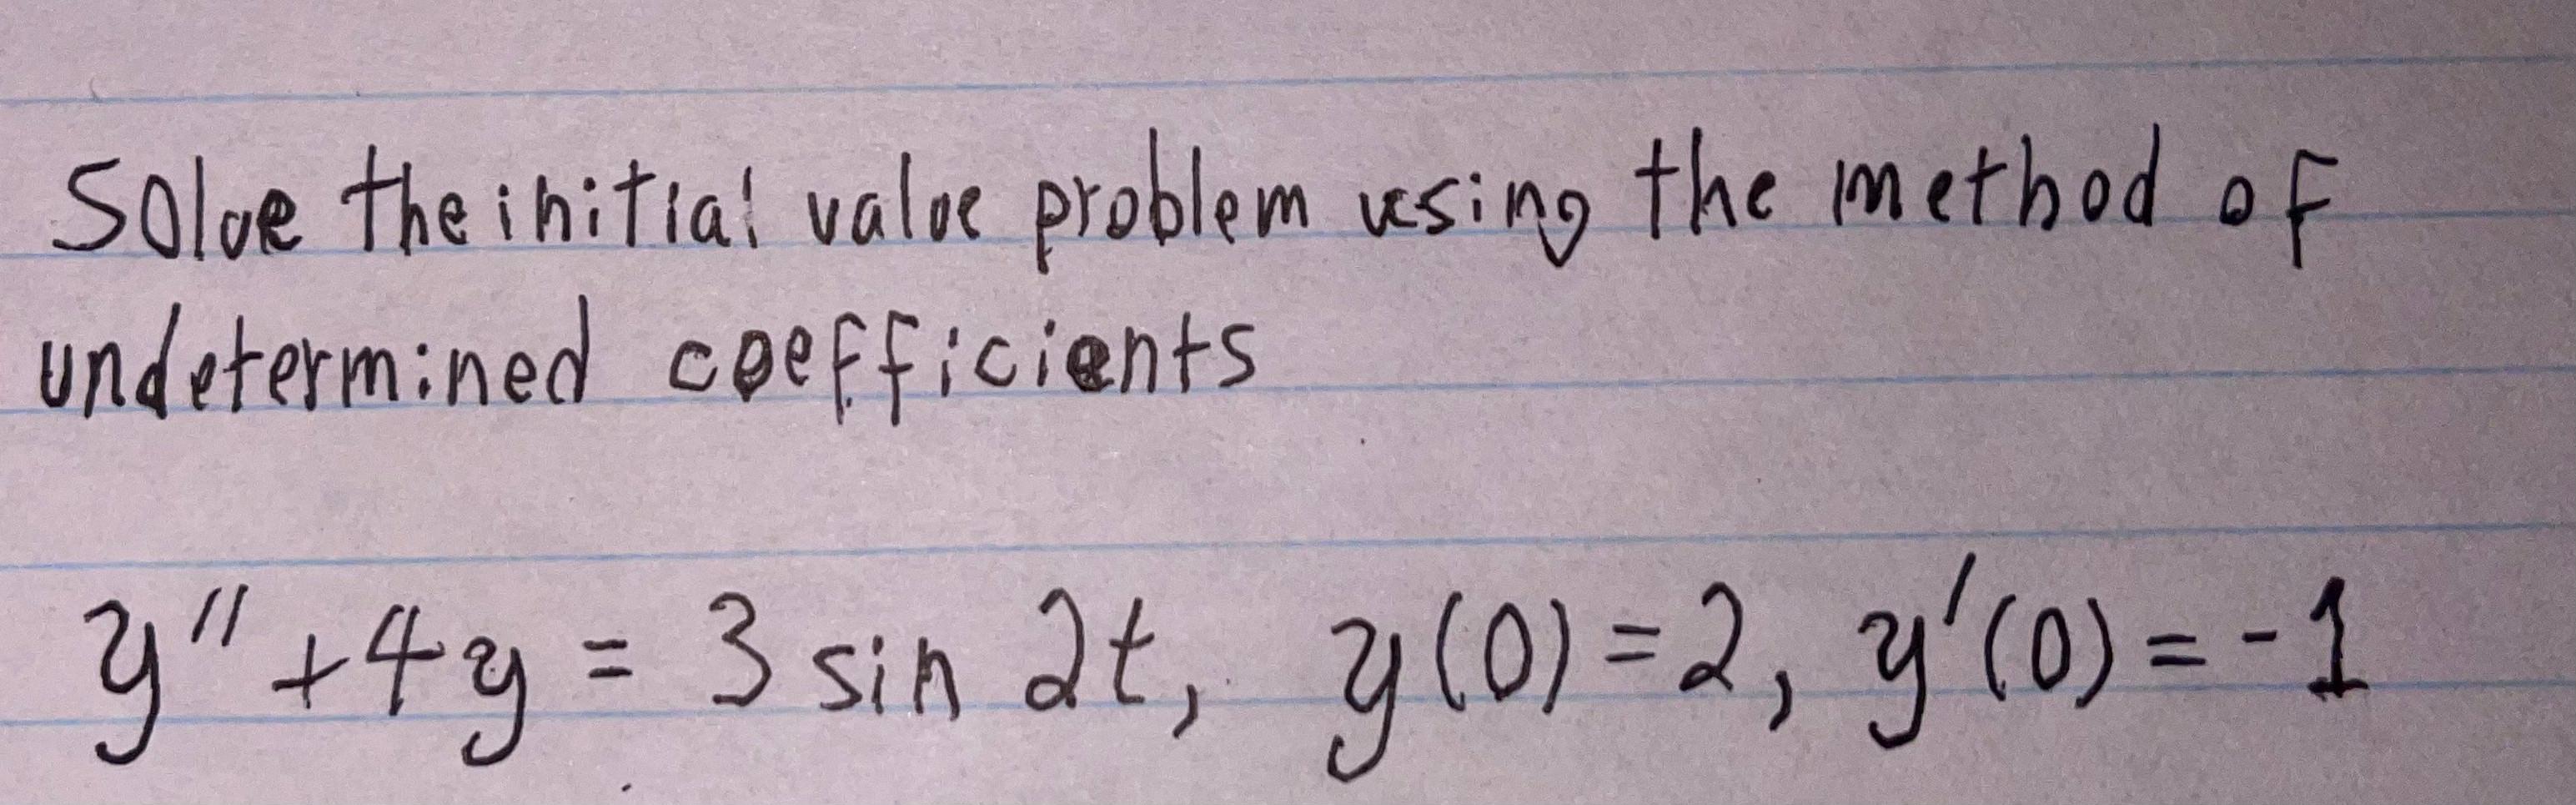 Solve the initial value problem using the method of
undetermined coefficients
y'' + 4y = 3 sin 2t, y(0) = 2, y'(0) = -1